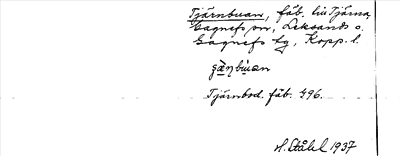 Tjärnbuan, fäb. till Tjärna,
Gagnefs sn, Leksands o.
Gagnefs tg, Kopp. l.
Tjärnbod. fäb. 496.
H. Ståhl 1937